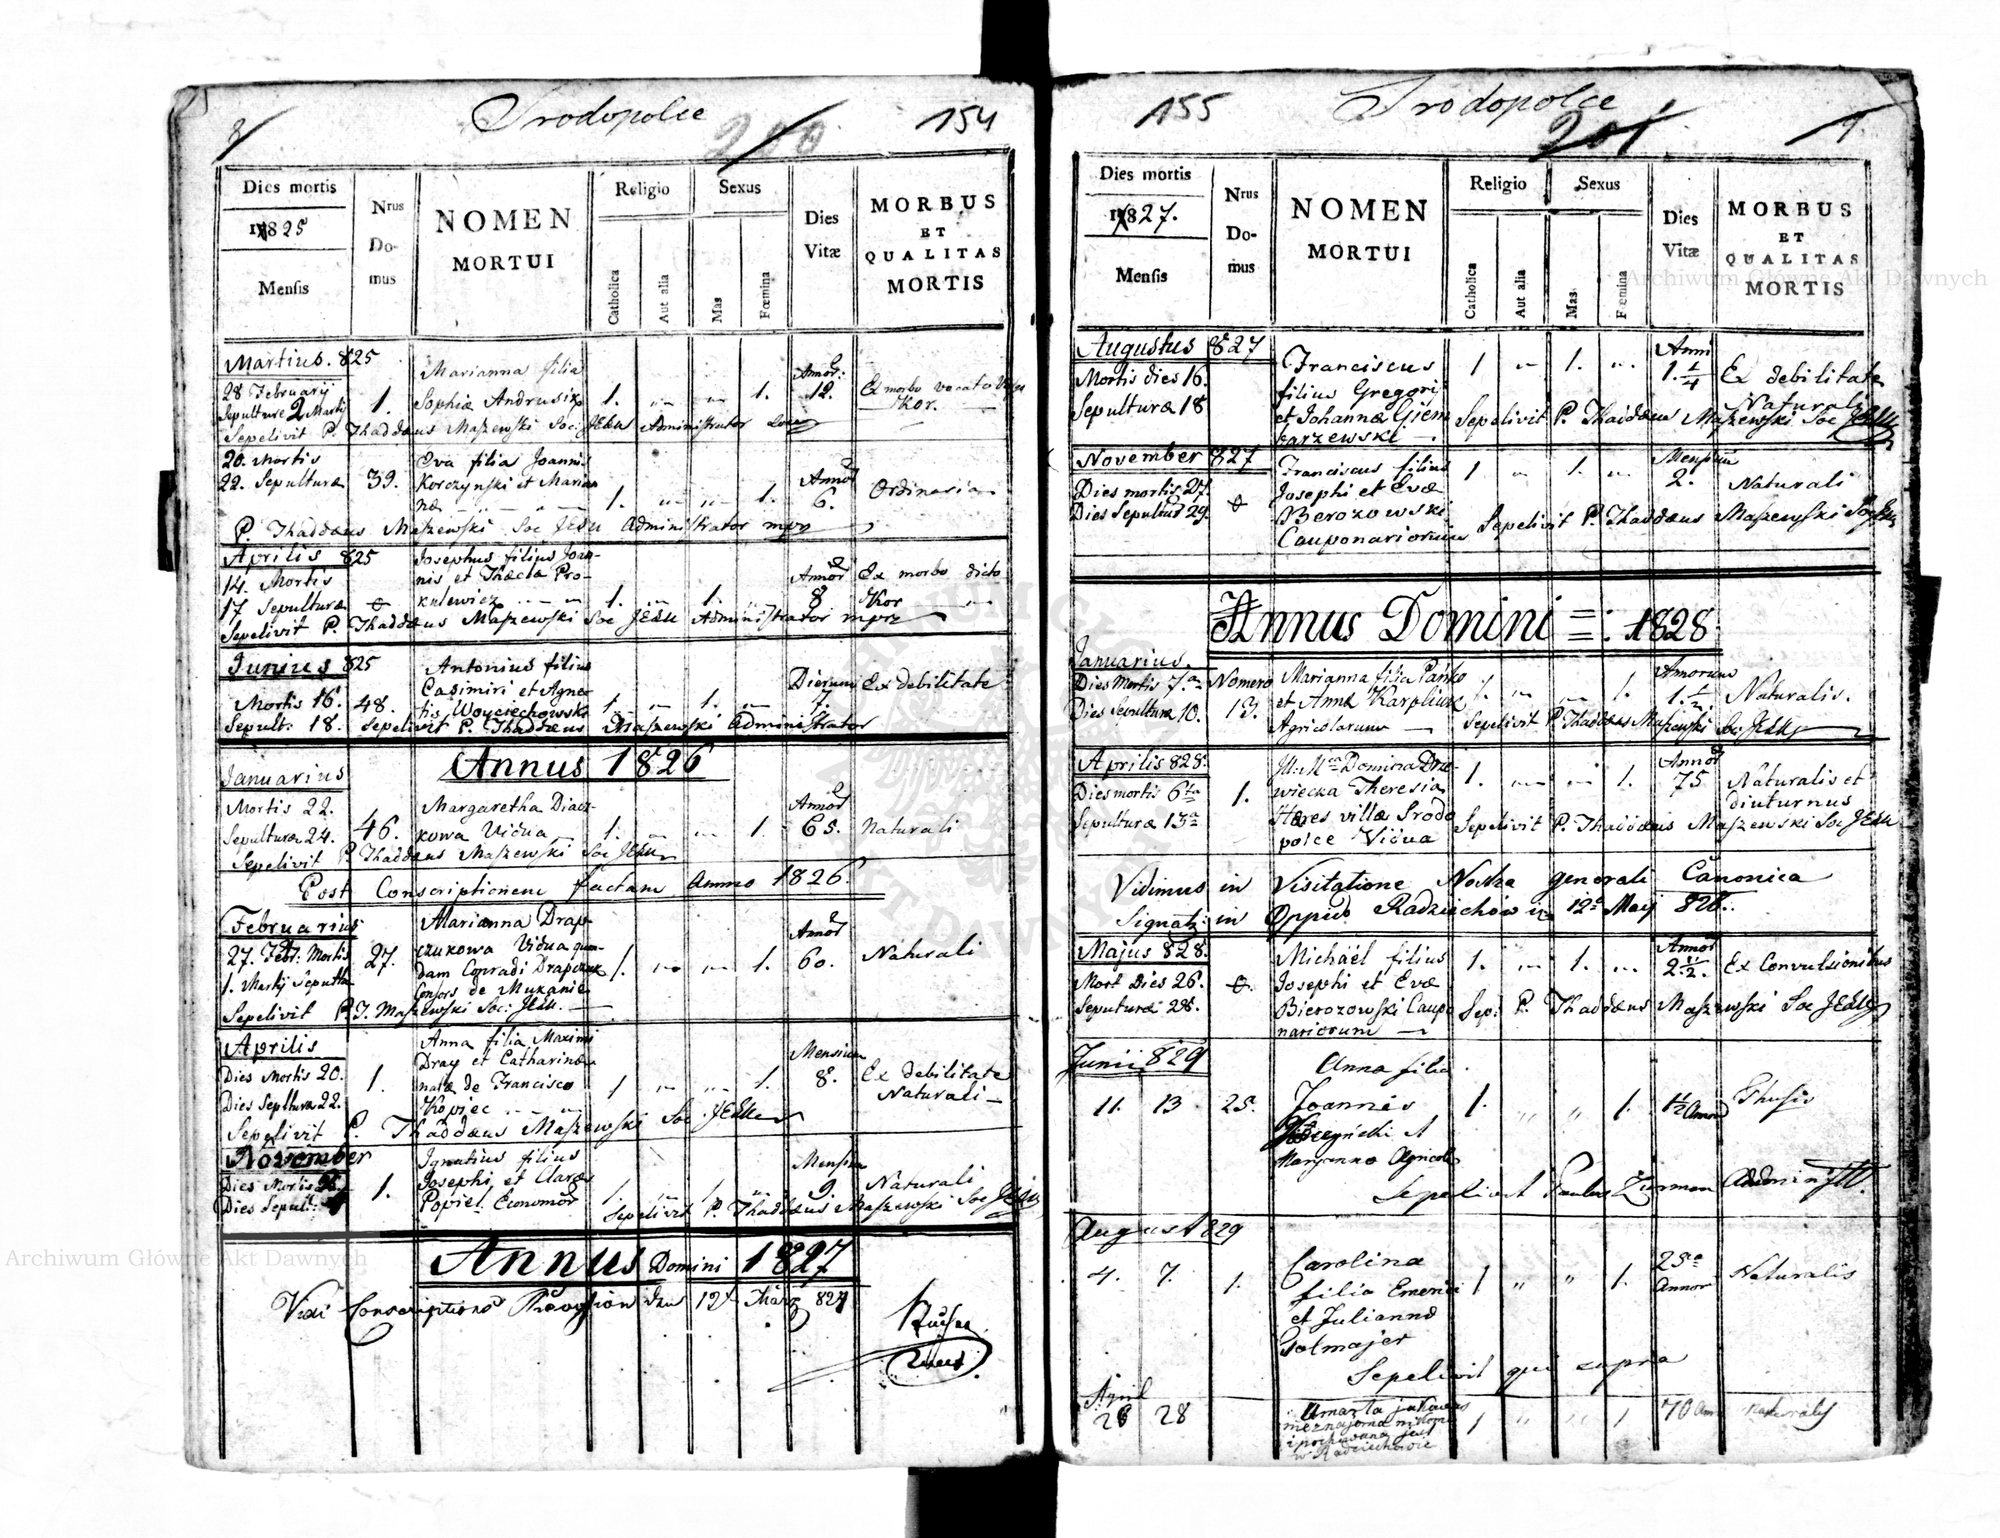 8/
Srodopolce
200
154
Dies mortis
1825
Mensis
Nrus
Do-
mus
NOMEN
MORTUI
Religio
Catholica
Aut alia
Sexus
Mas
Fœmina
Dies
Vitæ
MORBUS
ET
QUALITAS
MORTIS
Martius. 825
28 February
Sepulturæ 2 Martij
1.
Marianna filia
Sophiæ
1. 1.
Annor:
12.
Ex morbo vocato
Kor.
Sepelivit P. Thaddæus Maszewski Soc: JESU Administrator
20. Mortis
22. Sepulturæ
39.
Eva filia Joannis
Korczynski et Marian
næ
1. 1.
Annor
6.
Ordinaria
P. Thaddæus Maszewski Soc JESU Administrator mpr
Aprilis 825
14. Mortis
17 Sepulturæ
Josephus filius Joan-
nis et Thæcla Pro-
kulewicz
1. 1.
Annor
8
Ex morbo dicto
Kor
Sepelivit P. Thaddæus Maszewski Soc JESU Administrator mpr
Junius 825
Mortis 16.
Sepult: 18.
48.
Antonius filius
Casimiri et Agne-
tis Woyciechowski
1. 1.
Dierum
7.
Ex debilitate
Sepelivit P. Thaddæus Maszewski Administrator
Annus 1826
Januarius
Mortis 22.
Sepulturæ 24.
46.
Margaretha Diacz-
kowa Vidua
1. 1.
Annor
65.
Naturali
Sepelivit P. Thaddæus Maszewski Soc JESU
Post Conscriptionem factam Anno 1826.
Februarius
27. Febr: Mortis
1. Martij Sepultæ
27.
Marianna Drap-
czukowa Vidua quon-
dam Conradi Drapczuk
Consors de Mukanie
1. 1.
Annor
60.
Naturali
Sepelivit P. T. Maszewski Soc. JESU.
Aprilis
Dies Mortis 20.
Dies Septturæ 22.
1.
Anna filia Maximi
Dray et Catharinæ
natæ de Francisco
Kopiec
1 1.
Mensium
8.
Ex debilitate
Naturali
Sepelivit P. Thaddæus Maszewski Soc JESU
November
Dies Mortis
Dies Sepult:
1.
Ignatius filius
Josephi et Claræ
Popiel Economor
1. 1
Mensium
9
Naturali
Sepelivit P. Thaddæus Maszewski Soc JESU
Annus Domini 1827
Vidi Conscriptions Revision den 12t März 827
155
Srodopolce
201
9
Dies mortis
1827.
Mensis
Nrus
Do-
mus
NOMEN
MORTUI
Religio
Catholica
Aut alia
Sexus
Mas
Fœmina
Dies
Vitæ
MORBUS
ET
QUALITAS
MORTIS
Augustus 827
Mortis dies 16.
Sepulturæ 18
Franciscus
filius Gregorij
et Johannæ Giem
barzewski
1 1.
Anni
1. 1/4
Ex debilitate
Naturali
Sepelivit P. Thaddæus Maszewski Soc JESU
November 827
Dies mortis 27.
Dies Sepultur 29.
Franciscus filius
Josephi et Evæ
Berozowski
Cauponariorum
1 1.
Mensium
2.
Naturali
Sepelivit P. Thaddæus Maszewski Soc JESU
Annus Domini 1828
Januarius.
Dies Mortis 7.a
Dies Sepultura 10.
Nomero
13.
Marianna filia Pańko
et Anna Karpliuk
Agricolarum
1. 1.
Annorum
1. 1/2
Naturalis.
Sepelivit P. Thaddæus Maszewski Soc: JESU
Aprilis 828.
Dies mortis 6ta
Sepulturæ 13a
1.
Domina Drze-
wiecka Theresia
Hæres villæ Srodo
polce Vidua
1. 1.
Annor
75
Naturalis et
diuturnus
Sepelivit P. Thaddæus Maszewski Soc JESU
Vidimus in Visitatione Nostra generali Canonica
Signatz in Oppido Radziechów 12a Maij 828.
Majus 828.
Mort Dies 26.
Seputuræ 28.
Michäel filius
Josephi et Evæ
Bierozowski Caupo
nariorum
1. 1.
Annor
2 1/2.
Ex Convulsionibus
Sep: P. Thaddæus Maszewski Soc JESU
Junii 829
11. 13
25.
Anna filia
Joannis
Korczynski et
Maryanna Agricol
1. 1.
1 1/2 Annor
Phtysis
Sepelivit Paulus Zinmon Administr.
August 829
4. 7.
1.
Carolina
filia Emerici
et Julianna
Golmajer
1 1.
25
Annor
Naturalis
Sepelivit qui supra
April
26 28
Umarła jakowas
nieznajoma
i pochowana jest
w Radziechowie
1 1
70 Ann
naturalis
Archiwum Główne Akt Dawnych
Archiwum Główne Akt Dawnych